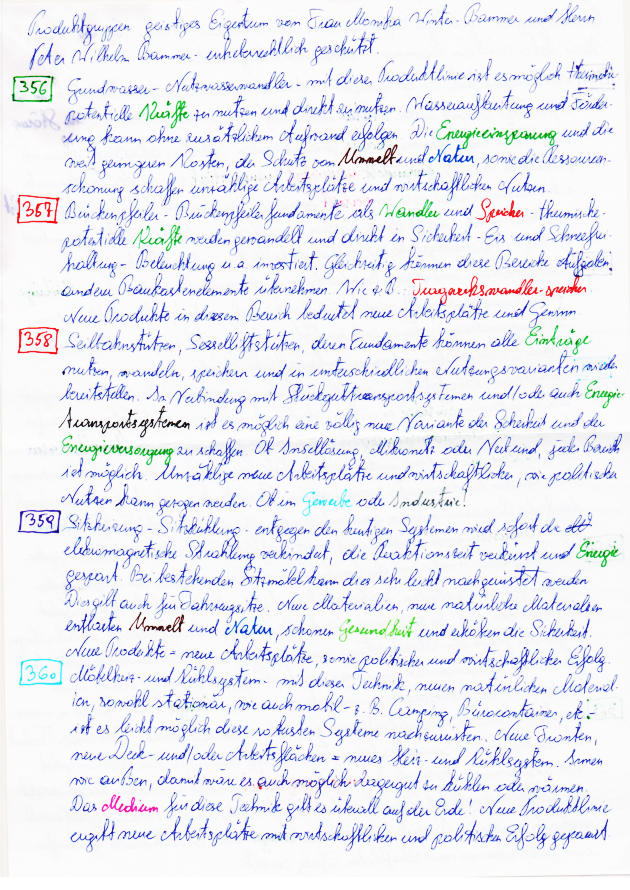 Produktgruppen geistiges Eigentum von Frau Monika Winter-Bammer und Herrn
Peter Wilhelm Bammer - urheberrechtlich geschützt.
356 Grundwasser - Nutzwasserwandler - mit dieser Produktlinie ist es möglich thermische-
potentielle Kräfte zu nutzen und direkt zu nutzen. Wasseraufbereitung und Förder-
ung kann ohne zusätzlichem Aufwand erfolgen. Die Energieeinsparung und die
weit geringeren Kosten, der Schutz von Umwelt und Natur, sowie die Ressourcen-
schonung schaffen unzählige Arbeitsplätze und wirtschaftlichen Nutzen.
357 Brückenpfeiler - Brückenpfeilerfundamente als Wandler und Speicher - thermische-
potentielle Kräfte werden gewandelt und direkt in Sicherheit - Eis und Schneefrei-
haltung - Beleuchtung u.a. investiert. Gleichzeitig können diese Bereiche Aufgaben
anderer Baukastenelemente übernehmen. Wie z.B. Tragwerkswandler-speicher
Neue Produkte in diesem Bereich bedeutet neue Arbeitsplätze und Gewinn
358 Seilbahnstützen, Sesselliftstützen, deren Fundamente können alle Einträge
nutzen, wandeln, speichern und in unterschiedlichen Nutzungsvarianten wieder
bereitstellen. In Verbindung mit Stückguttransportsystemen und/oder auch Energie-
transportsystemen ist es möglich eine völlig neue Variante der Sicherheit und der
Energieversorgung zu schaffen. Ob Insellösung, Mikronetz oder Verbund, jeder Bereich
ist möglich. Unzählige neue Arbeitsplätze und wirtschaftlicher, wie politischer
Nutzen kann gezogen werden. Ob im Gewerbe oder Industrie!
359 Sitzheizung - Sitzkühlung - entgegen den heutigen Systemen wird sofort die
elektromagnetische Strahlung verhindert, die Reaktionszeit verkürzt und Energie
gespart. Bei bestehenden Sitzmöbel kann dies sehr leicht nachgerüstet werden
Dies gilt auch für Fahrzeugsitze. Neue Materialien, neue natürliche Materialien
entlasten Umwelt und Natur, schonen Gesundheit und erhöhen die Sicherheit.
Neue Produkte = neue Arbeitsplätze, sowie politischer und wirtschaftlicher Erfolg.
360 Möbelheiz- und Kühlsystem - mit dieser Technik, neuen natürlichen Material-
ien, sowohl stationär, wie auch mobil - z.B. Camping, Bürocontainer, etc. -
ist es leicht möglich diese robusten Systeme nachzurüsten. Neue Fronten,
neue Deck- und/oder Arbeitsflächen = neues Heiz- und Kühlsystem. Innen
wie außen, damit wäre es auch möglich Lagergut zu kühlen oder wärmen.
Das Medium für diese Technik gibt es überall auf der Erde! Neue Produktlinie
ergibt neue Arbeitsplätze mit wirtschaftlichen und politischen Erfolg gepaart